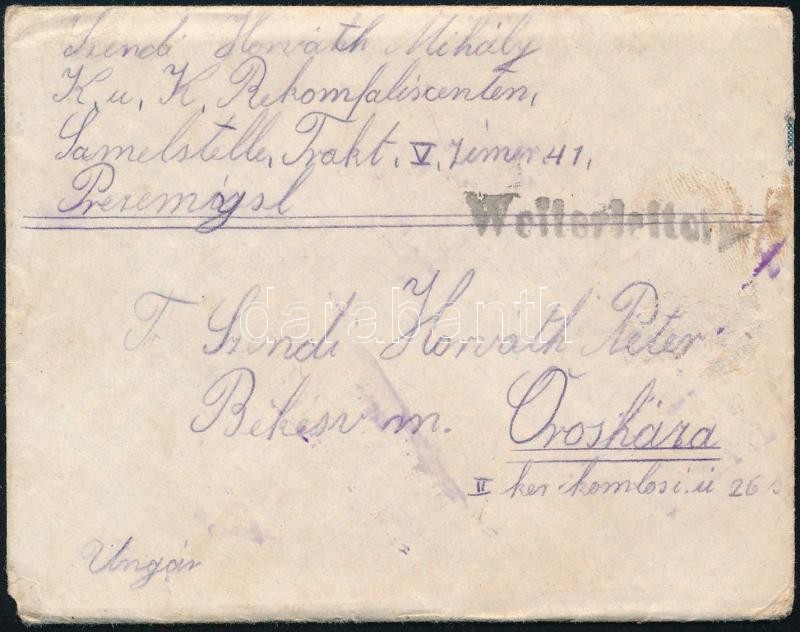 Szendi Horváth Mihály
K. u, K, Rekomfaliscenten,
Samelstelle, Trakt, V, Zimer 41,
Prezemÿsl
Weiterleiten
T. Szendi Horváth Péter
darabanth
Békésv m. Orosháza
II ker komlosi. ú 26 s
Ungár